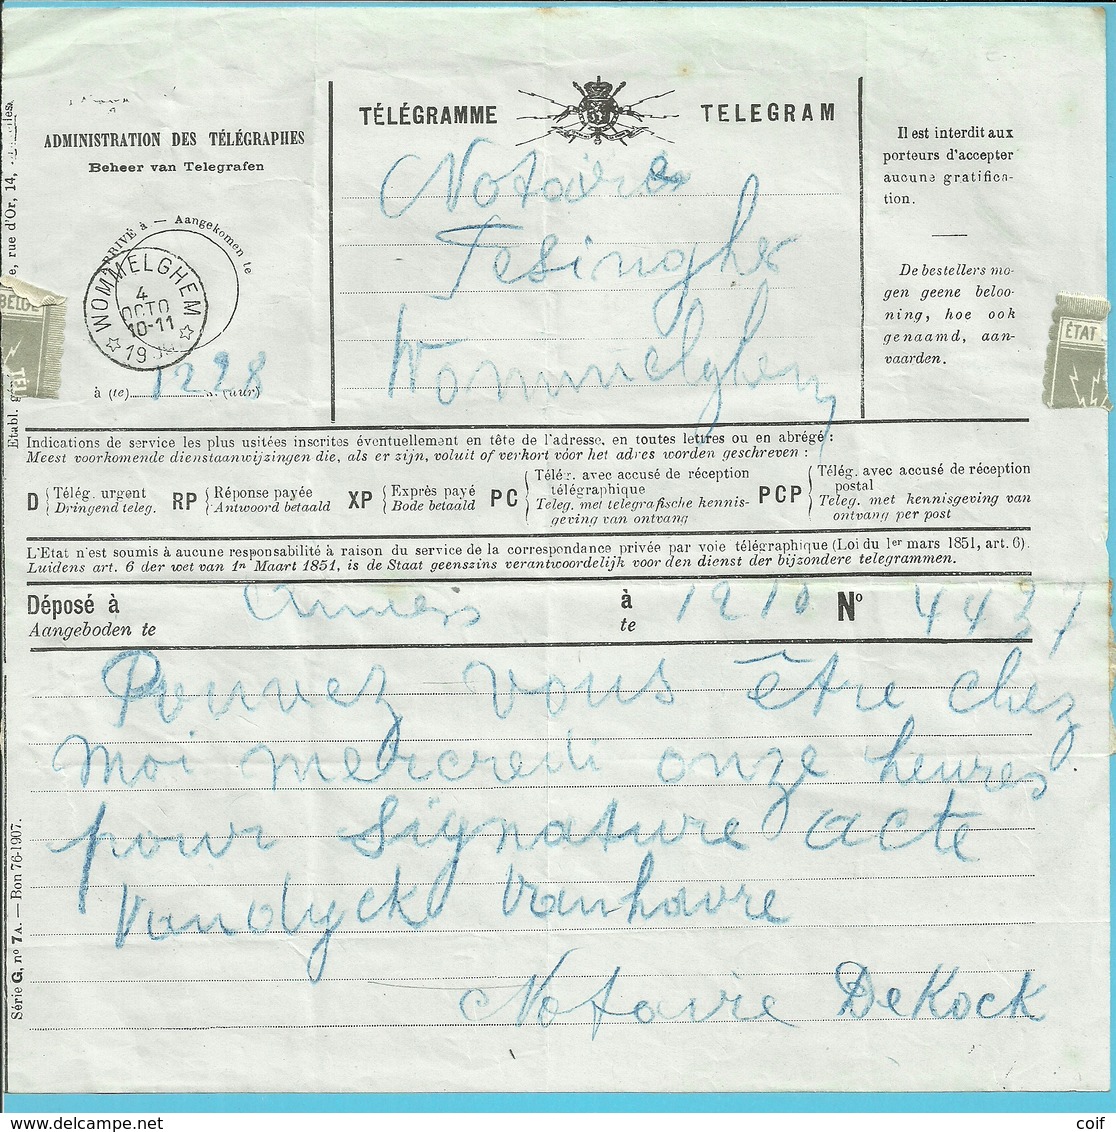 TÉLÉGRAMME TELEGRAM
ADMINISTRATION DES TÉLÉGRAPHES
Beheer van Telegrafen
ARRIVÉ à — Aangekomen te
WOMMELGHEM
4
OCTO
10-11
19
à (te) 1228 (uur)
Notaire
Tesingher
Wommelghem
Il est interdit aux
porteurs d'accepter
aucune gratifica-
tion.
De bestellers mo-
gen geene beloo-
ning, hoe ook
genaamd, aan-
vaarden.
BELGE
TÉL
ÉTAT
rue d'Or, 14,
Etabl.
Indications de service les plus usitées inscrites éventuellement en tête de l'adresse, en toutes lettres ou en abrégé :
Meest voorkomende dienstaanwijzingen die, als er zijn, voluit of verkort vóór het adres worden geschreven :
D Télég. urgent
Dringend teleg.
RP Réponse payée
Antwoord betaald
XP Exprès payé
Bode betaald
PC Télég. avec accusé de réception
télégraphique
Teleg. met telegrafische kennis-
geving van ontvang
PCP Télég. avec accusé de réception
postal
Teleg. met kennisgeving van
ontvang per post
L'Etat n'est soumis à aucune responsabilité à raison du service de la correspondance privée par voie télégraphique (Loi du 1er mars 1851, art. 6).
Luidens art. 6 der wet van 1n Maart 1851, is de Staat geenszins verantwoordelijk voor den dienst der bijzondere telegrammen.
Déposé à Anvers à 1210 N° 4437
Aangeboden te te
Pouvez vous être chez
moi mercredi onze heures
pour signature acte
Vandyck Vanhavre
Notaire DeKock
Série G, n° 7A. — Bon 76-1907.
coif